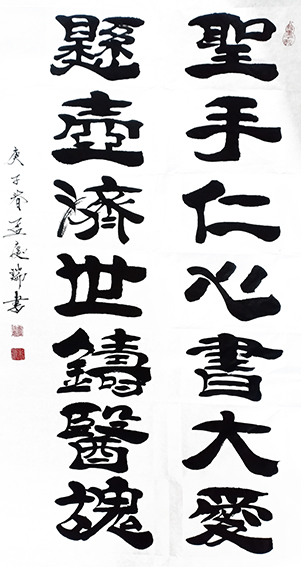 聖手仁心書大愛
懸壺濟世鑄醫魂
庚子春瑞書